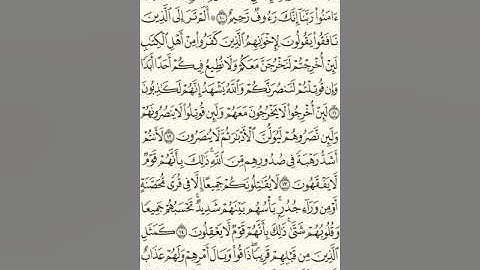 ءَامَنُوا۟ رَبَّنَآ إِنَّكَ رَءُوفٌ رَّحِيمٌ ١٠ ۞ أَلَمْ تَرَ إِلَى ٱلَّذِينَ
نَافَقُوا۟ يَقُولُونَ لِإِخْوَٰنِهِمُ ٱلَّذِينَ كَفَرُوا۟ مِنْ أَهْلِ ٱلْكِتَٰبِ
لَئِنْ أُخْرِجْتُمْ لَنَخْرُجَنَّ مَعَكُمْ وَلَا نُطِيعُ فِيكُمْ أَحَدًا أَبَدًا
وَإِن قُوتِلْتُمْ لَنَنصُرَنَّكُمْ وَٱللَّهُ يَشْهَدُ إِنَّهُمْ لَكَٰذِبُونَ
١١ لَئِنْ أُخْرِجُوا۟ لَا يَخْرُجُونَ مَعَهُمْ وَلَئِن قُوتِلُوا۟ لَا يَنصُرُونَهُمْ
وَلَئِن نَّصَرُوهُمْ لَيُوَلُّنَّ ٱلْأَدْبَٰرَ ثُمَّ لَا يُنصَرُونَ ١٢ لَأَنتُمْ
أَشَدُّ رَهْبَةً فِى صُدُورِهِم مِّنَ ٱللَّهِ ۚ ذَٰلِكَ بِأَنَّهُمْ قَوْمٌ
لَّا يَفْقَهُونَ ١٣ لَا يُقَٰتِلُونَكُمْ جَمِيعًا إِلَّا فِى قُرًى مُّحَصَّنَةٍ
أَوْ مِن وَرَآءِ جُدُرٍۭ ۚ بَأْسُهُم بَيْنَهُمْ شَدِيدٌ ۚ تَحْسَبُهُمْ جَمِيعًا
وَقُلُوبُهُمْ شَتَّىٰ ۚ ذَٰلِكَ بِأَنَّهُمْ قَوْمٌ لَّا يَعْقِلُونَ ١٤ كَمَثَلِ
ٱلَّذِينَ مِن قَبْلِهِمْ قَرِيبًا ۖ ذَاقُوا۟ وَبَالَ أَمْرِهِمْ وَلَهُمْ عَذَابٌ